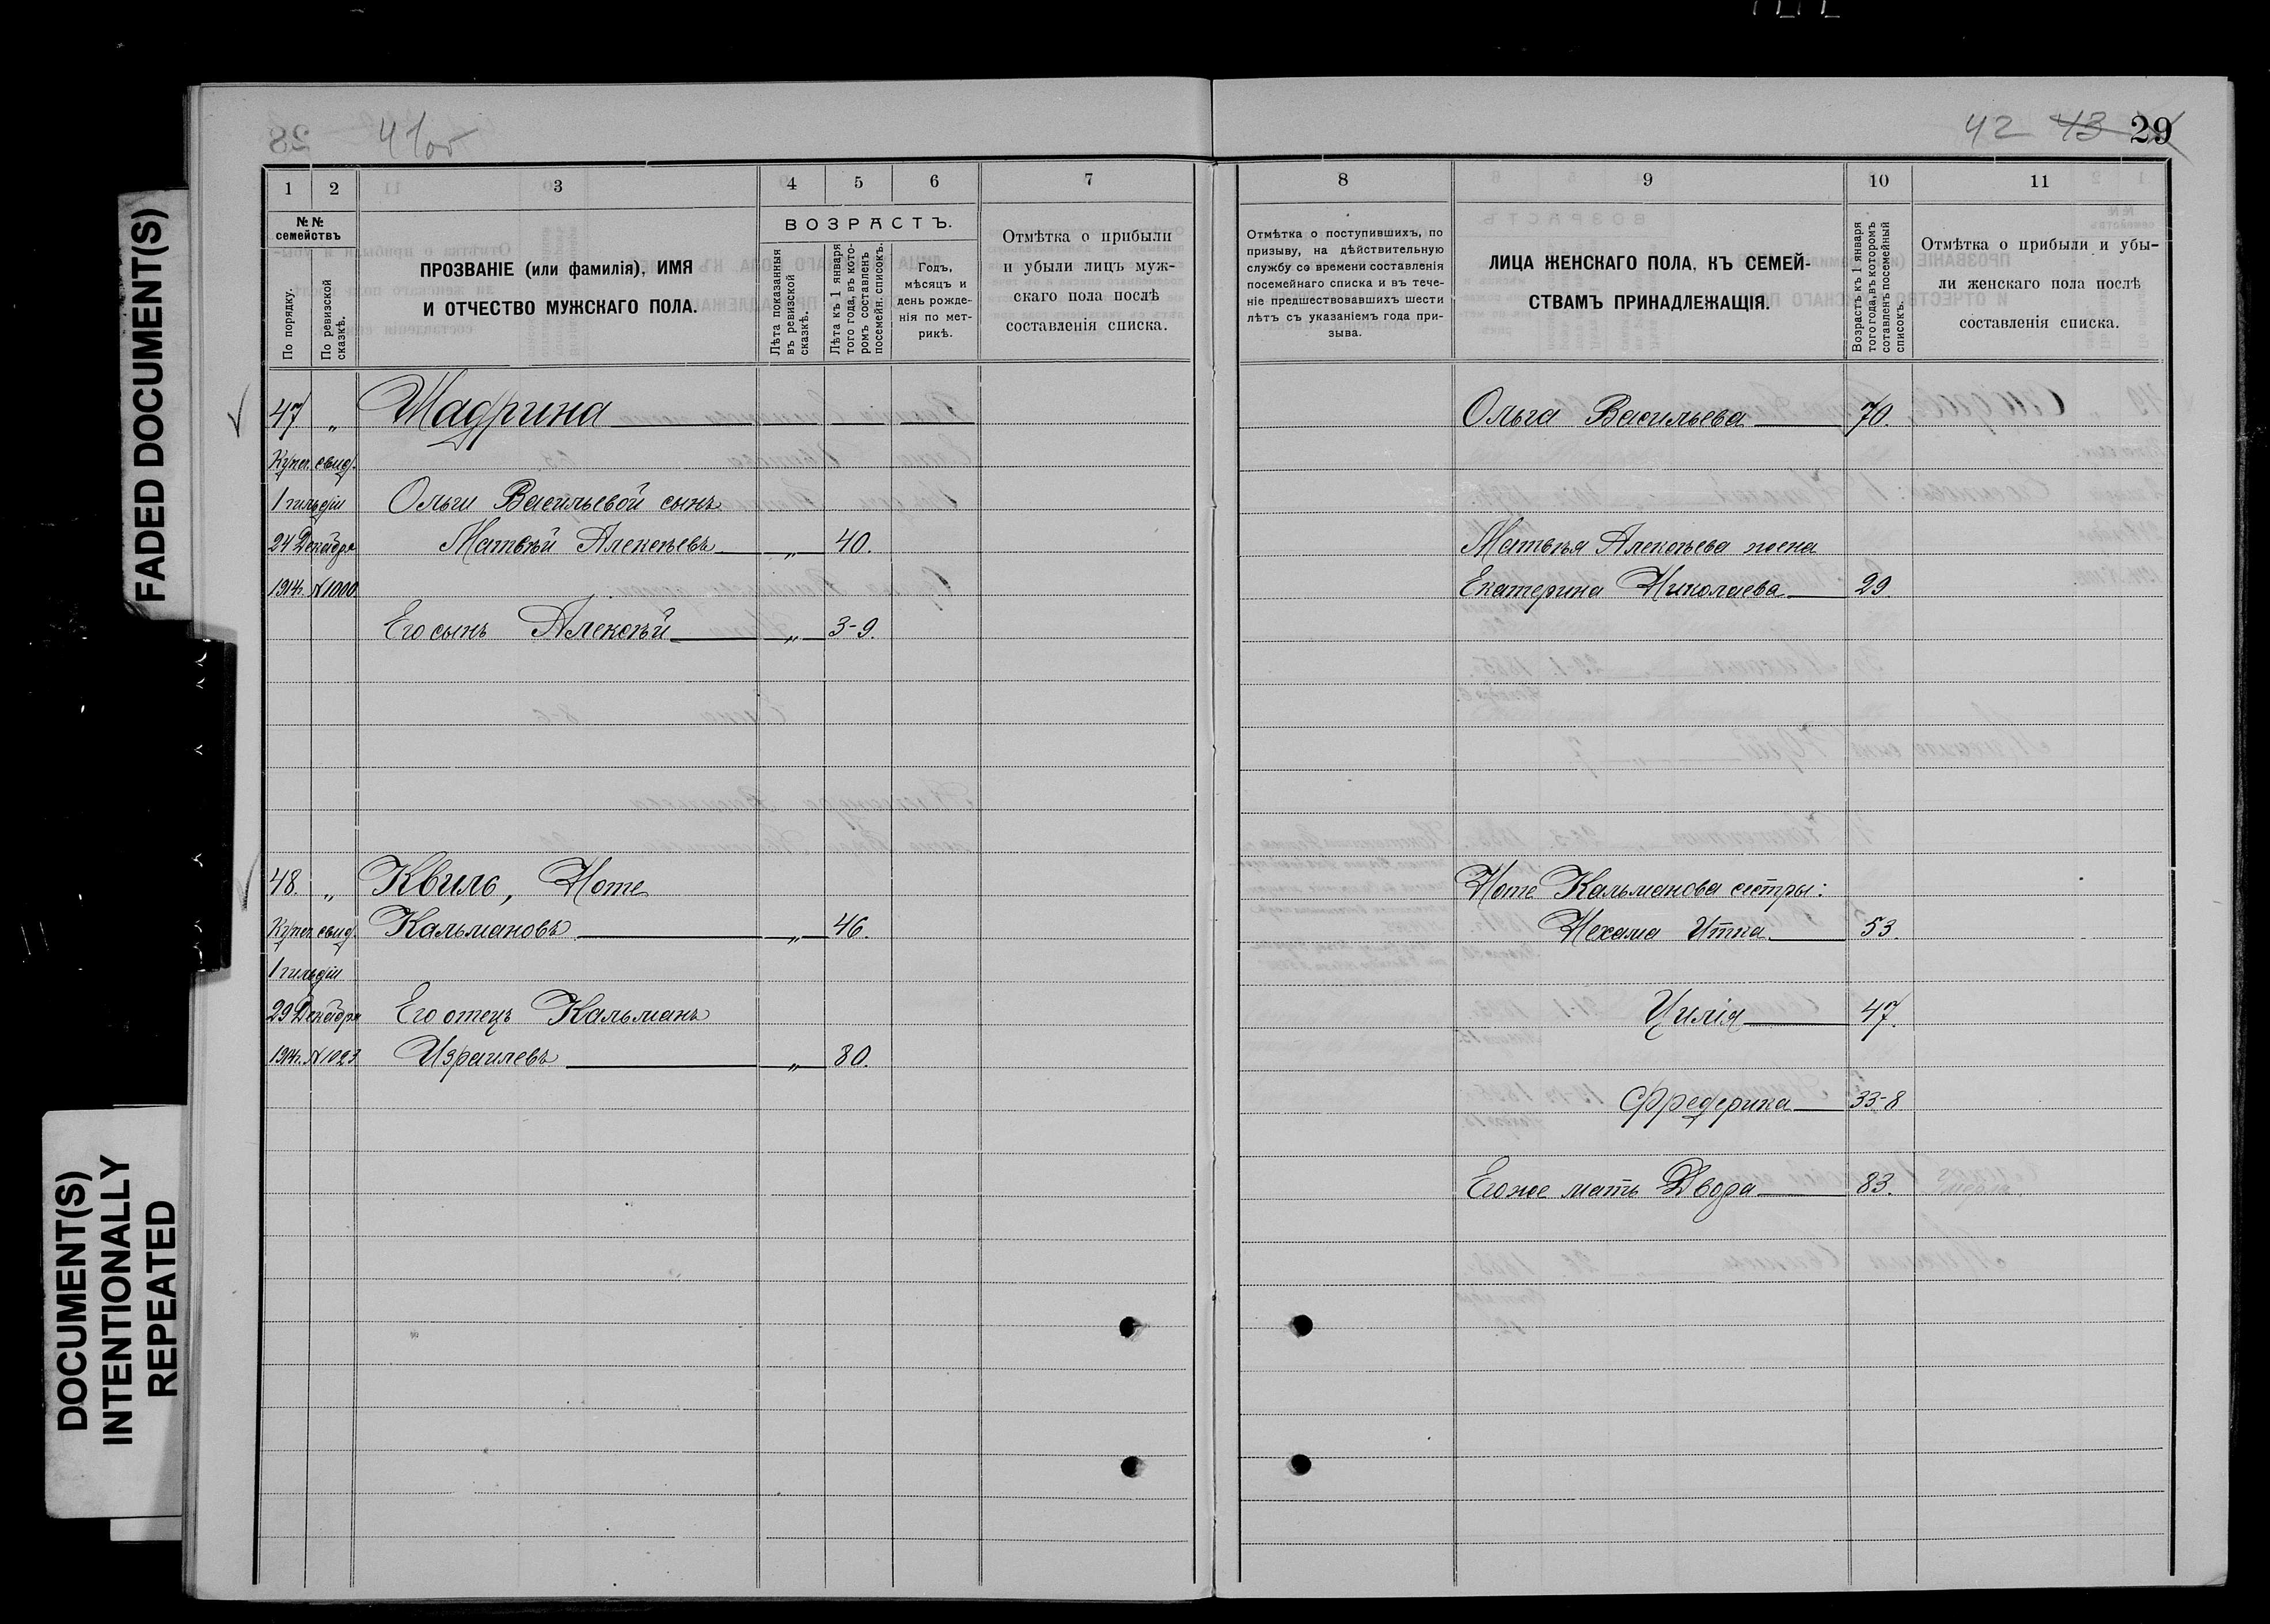 FADED DOCUMENT(S)
DOCUMENT(S)
INTENTIONALLY
REPEATED
41об
1
2
3
4
5
6
7
№ №
семействъ
По порядку.
По ревизской
сказкѣ.
ПРОЗВАНІЕ (или фамилія), ИМЯ
И ОТЧЕСТВО МУЖСКАГО ПОЛА.
ВОЗРАСТЪ.
Лѣта показанныя
въ ревизской
сказкѣ.
Лѣта къ 1 января
того года, въ кото-
ромъ составленъ
посемейн. списокъ.
Годъ,
мѣсяцъ и
день рожде-
нія по мет-
рикѣ.
Отмѣтка о прибыли
и убыли лицъ муж-
скаго пола послѣ
составленія списка.
47 „ Шадрина
Купеч. свид.
1 гильдіи Ольги Васильевой сынъ
24 Декабря Матвѣй Алексѣевъ „ 40.
1914г. №1000
Его сынъ Алексѣй „ 3-9.
48. „ Квиль, Ноте
Купеч. свид. Кальмановъ „ 46.
1 гильдіи
29 Декабря Его отецъ Кальманъ
1914г. №1023 Израилевъ „ 80.
42 43 29
8
9
10
11
Отмѣтка о поступившихъ, по
призыву, на дѣйствительную
службу со времени составленія
посемейнаго списка и въ тече-
ніе предшествовавшихъ шести
лѣтъ съ указаніемъ года при-
зыва.
ЛИЦА ЖЕНСКАГО ПОЛА, КЪ СЕМЕЙ-
СТВАМЪ ПРИНАДЛЕЖАЩІЯ.
Возрастъ къ 1 января
того года, въ которомъ
составленъ посемейный
списокъ.
Отмѣтка о прибыли и убы-
ли женскаго пола послѣ
составленія списка.
Ольга Васильева 70.
Матвѣя Алексѣева жена
Екатерина Николаева 29.
Ноте Кальманова сестры:
Нехама Итка 53.
Цилія 47.
Фредерика 33-8
Его же мать Двора 83.